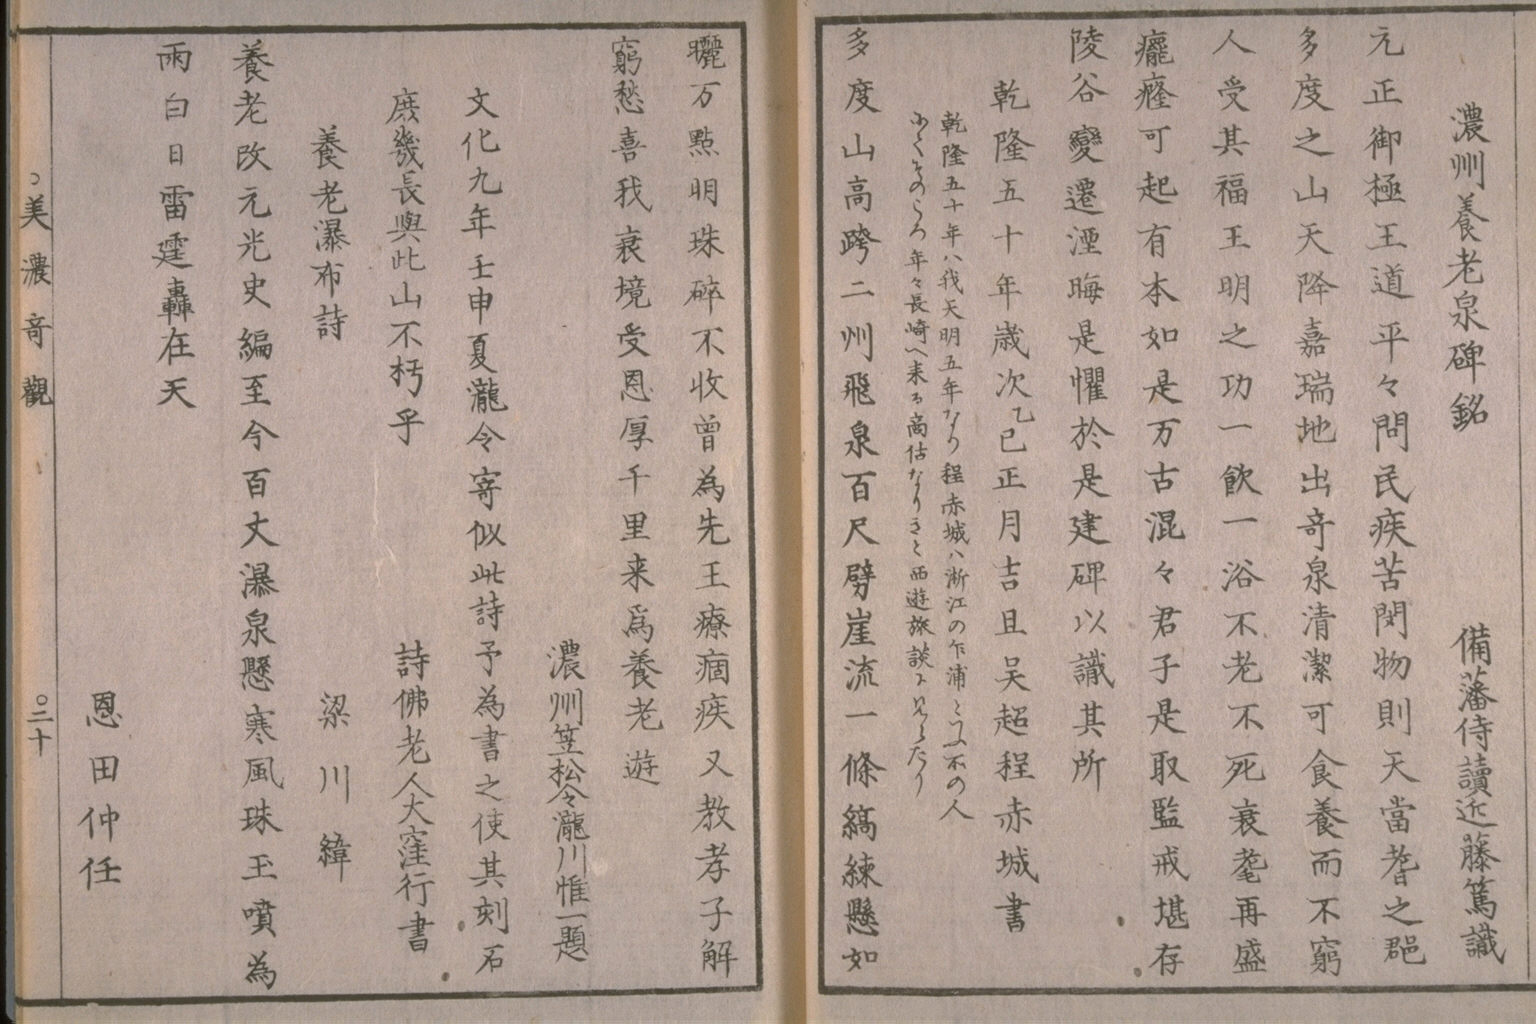 濃州養老泉碑銘　備藩侍讀近藤篤識
元正御極王道平々問民疾苦閔物則天當耆之郡
多度之山天降嘉瑞地出竒泉清潔可食養而不窮
人受其福王明之功一飲一浴不老不死衰耄再盛
癰癃可起有本如是万古混々君子是取監戒堪存
陵谷變遷湮晦是懼於是建碑以識其所
乾隆五十年歳次乙巳正月吉旦吴超程赤城書
乾隆五十年ハ我天明五年なり程赤城ハ淅江の乍浦といふ所の人
年々長崎へ来る商估なりきと西遊旅談に見らたり
多度山高跨二州飛泉百尺劈崖流一條縞練懸如
曬万點明珠碎不收曾為先王療痼疾又教孝子解
窮愁喜我衰境受恩厚千里来爲養老遊
濃州笠松令瀧川惟一題
文化九年壬申夏瀧令寄似此詩予為書之使其刻石
庶幾長與此山不朽乎　詩佛老人大窪行書
養老瀑布詩　梁川緯
養老改元光史編至今百丈瀑泉懸寒風珠玉噴為
雨白日雷霆轟在天
恩田仲任
美濃竒觀　三十